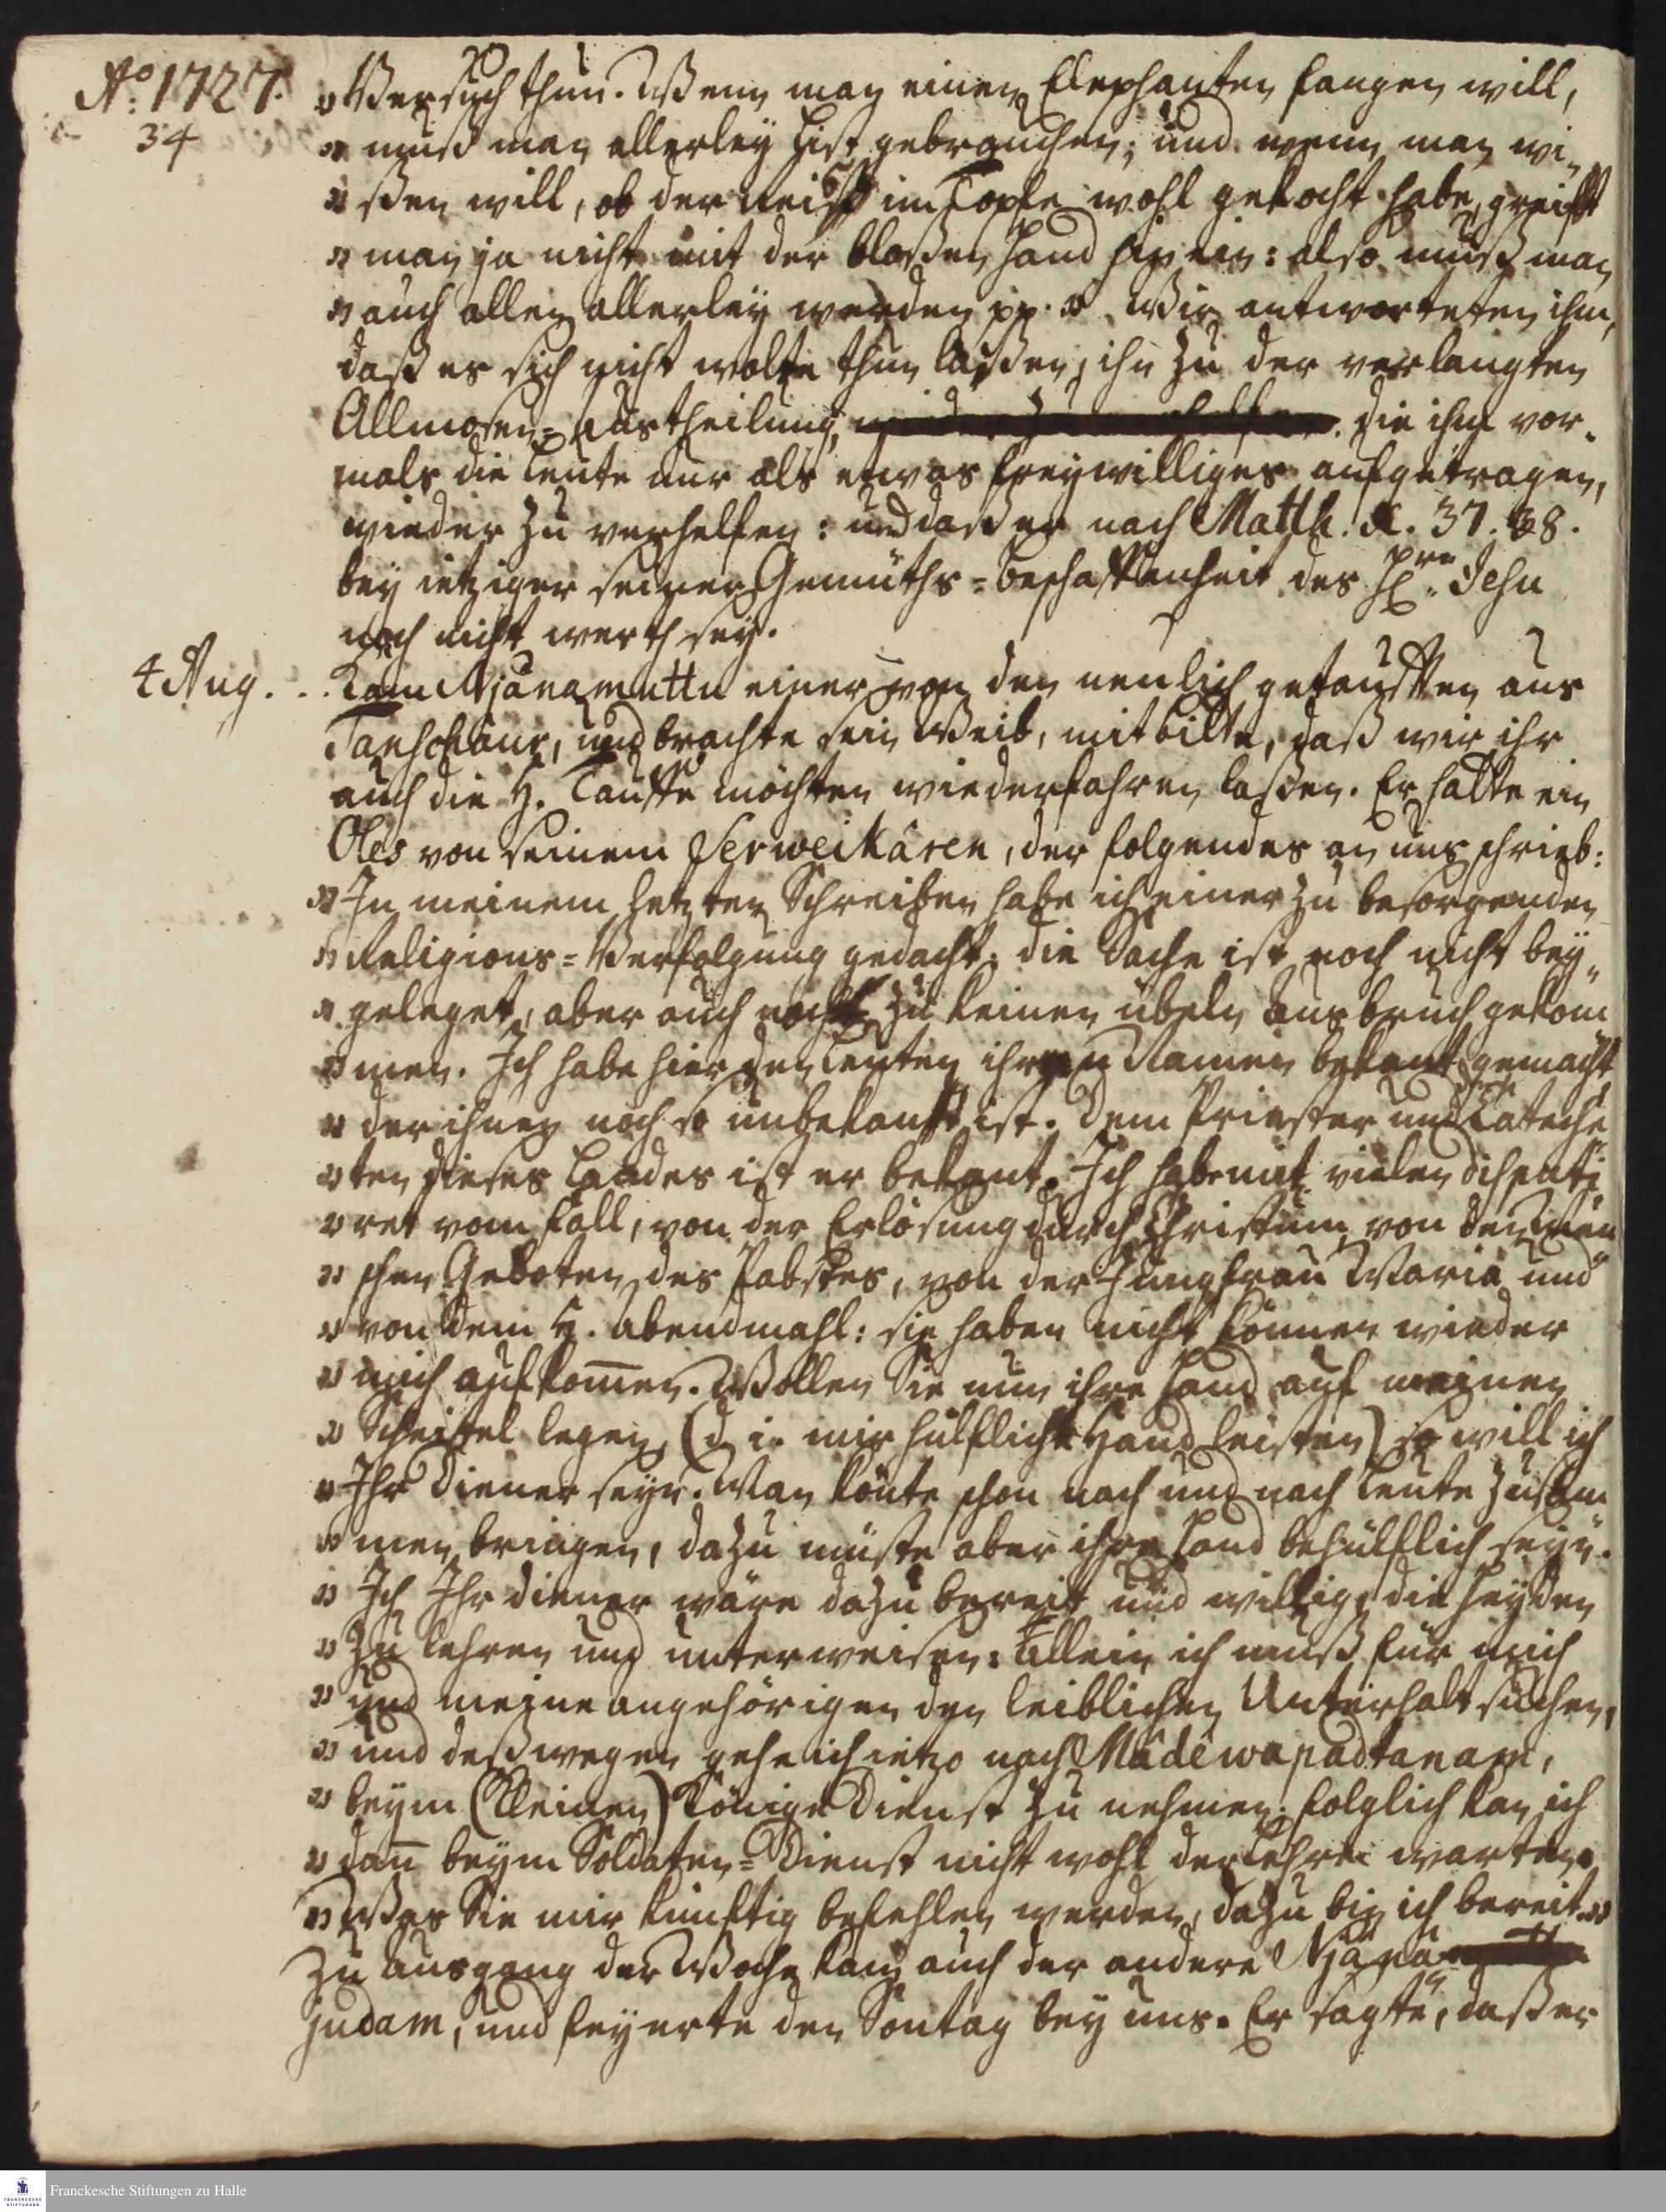 Aº. 1727.
34
" Versuch thun. Wenn man einen Elephanten fangen will,
" muß man allerley List gebrauchen; und wenn man wi-
" ßen will, ob der Reiß im Topfe wohl gekocht habe, greifft
" man ja nicht mit der bloßen Hand hinein: also muß man
" auch allen allerley werden pp. " Wir antworteten ihm,
daß es sich nicht wolte thun laßen, ihn zu der verlangten
Allmosen=Austheilung, die ihm vor-
mals die Leute nur als etwas freywilliges aufgetragen,
wieder zu verhelfen: und daß er nach Matth. X. 37. 38.
bey ietziger seiner Gemüths=Beschaffenheit des Hrn. Jesu
noch nicht werth sey.
4 Aug. . . Kam Njânamuttu einer von den neulich getaufften aus
Tanschaur, und brachte sein Weib, mit bitte, daß wir ihr
auch die H. Tauffe möchten wiederfahren laßen. Er hatte ein
Oles von seinem Serweikâren, der folgendes an uns schrieb:
" In meinem letzten Schreiben habe ich einer zu besorgenden
" Religions=Verfolgung gedacht: die Sache ist noch nicht bey-
" geleget, aber auch noch zu keinen übeln ausbruch gekom
" men. Ich habe hier den Leuten ihren Namen bekant gemacht
" der ihnen noch so unbekant ist. Dem Priester und Cateche
" ten dieses Landes ist er bekant. Ich habe mit vielen disputi
" ret vom Fall, von der Erlösung durch Christum, von den
" schen Geboten des Pabstes, von der Jungfrau Maria und
" von dem H. abendmahl: sie haben nicht können wieder
" mich aufkom̅en. Wollen Sie nun ihre Hand auf meinen
" Scheitel legen, (d. i. mir hülfliche Hand leisten) so will ich
" Ihr Diener seyn. Man könte schon nach und nach Leute zusam
" men bringen, dazu müste aber ihre Hand behülfflich seyn.
" Ich Ihr diener wäre dazu bereit und willig, die Heyden
" zu lehren und unterweisen: Allein ich muß für mich
" und meine angehörigen den leiblichen Unterhalt suchen,
" und deßwegen gehe ich ietzo nach Mâdêwapadtanam,
" beym (kleinen) Könige Dienst zu nehmen. folglich kan ich
" dan̅ beym Soldaten=Dienst nicht wohl der Lehre warten.
" Was Sie mir künftig befehlen werden, dazu bin ich bereit. "
Zu ausgang der Woche kam auch der andere Njâna-
judam, und feyerte den Sontag bey uns. Er sagte, daß er
Franckesche Stiftungen zu Halle
FRANCKESCHE
STIFTUNGEN